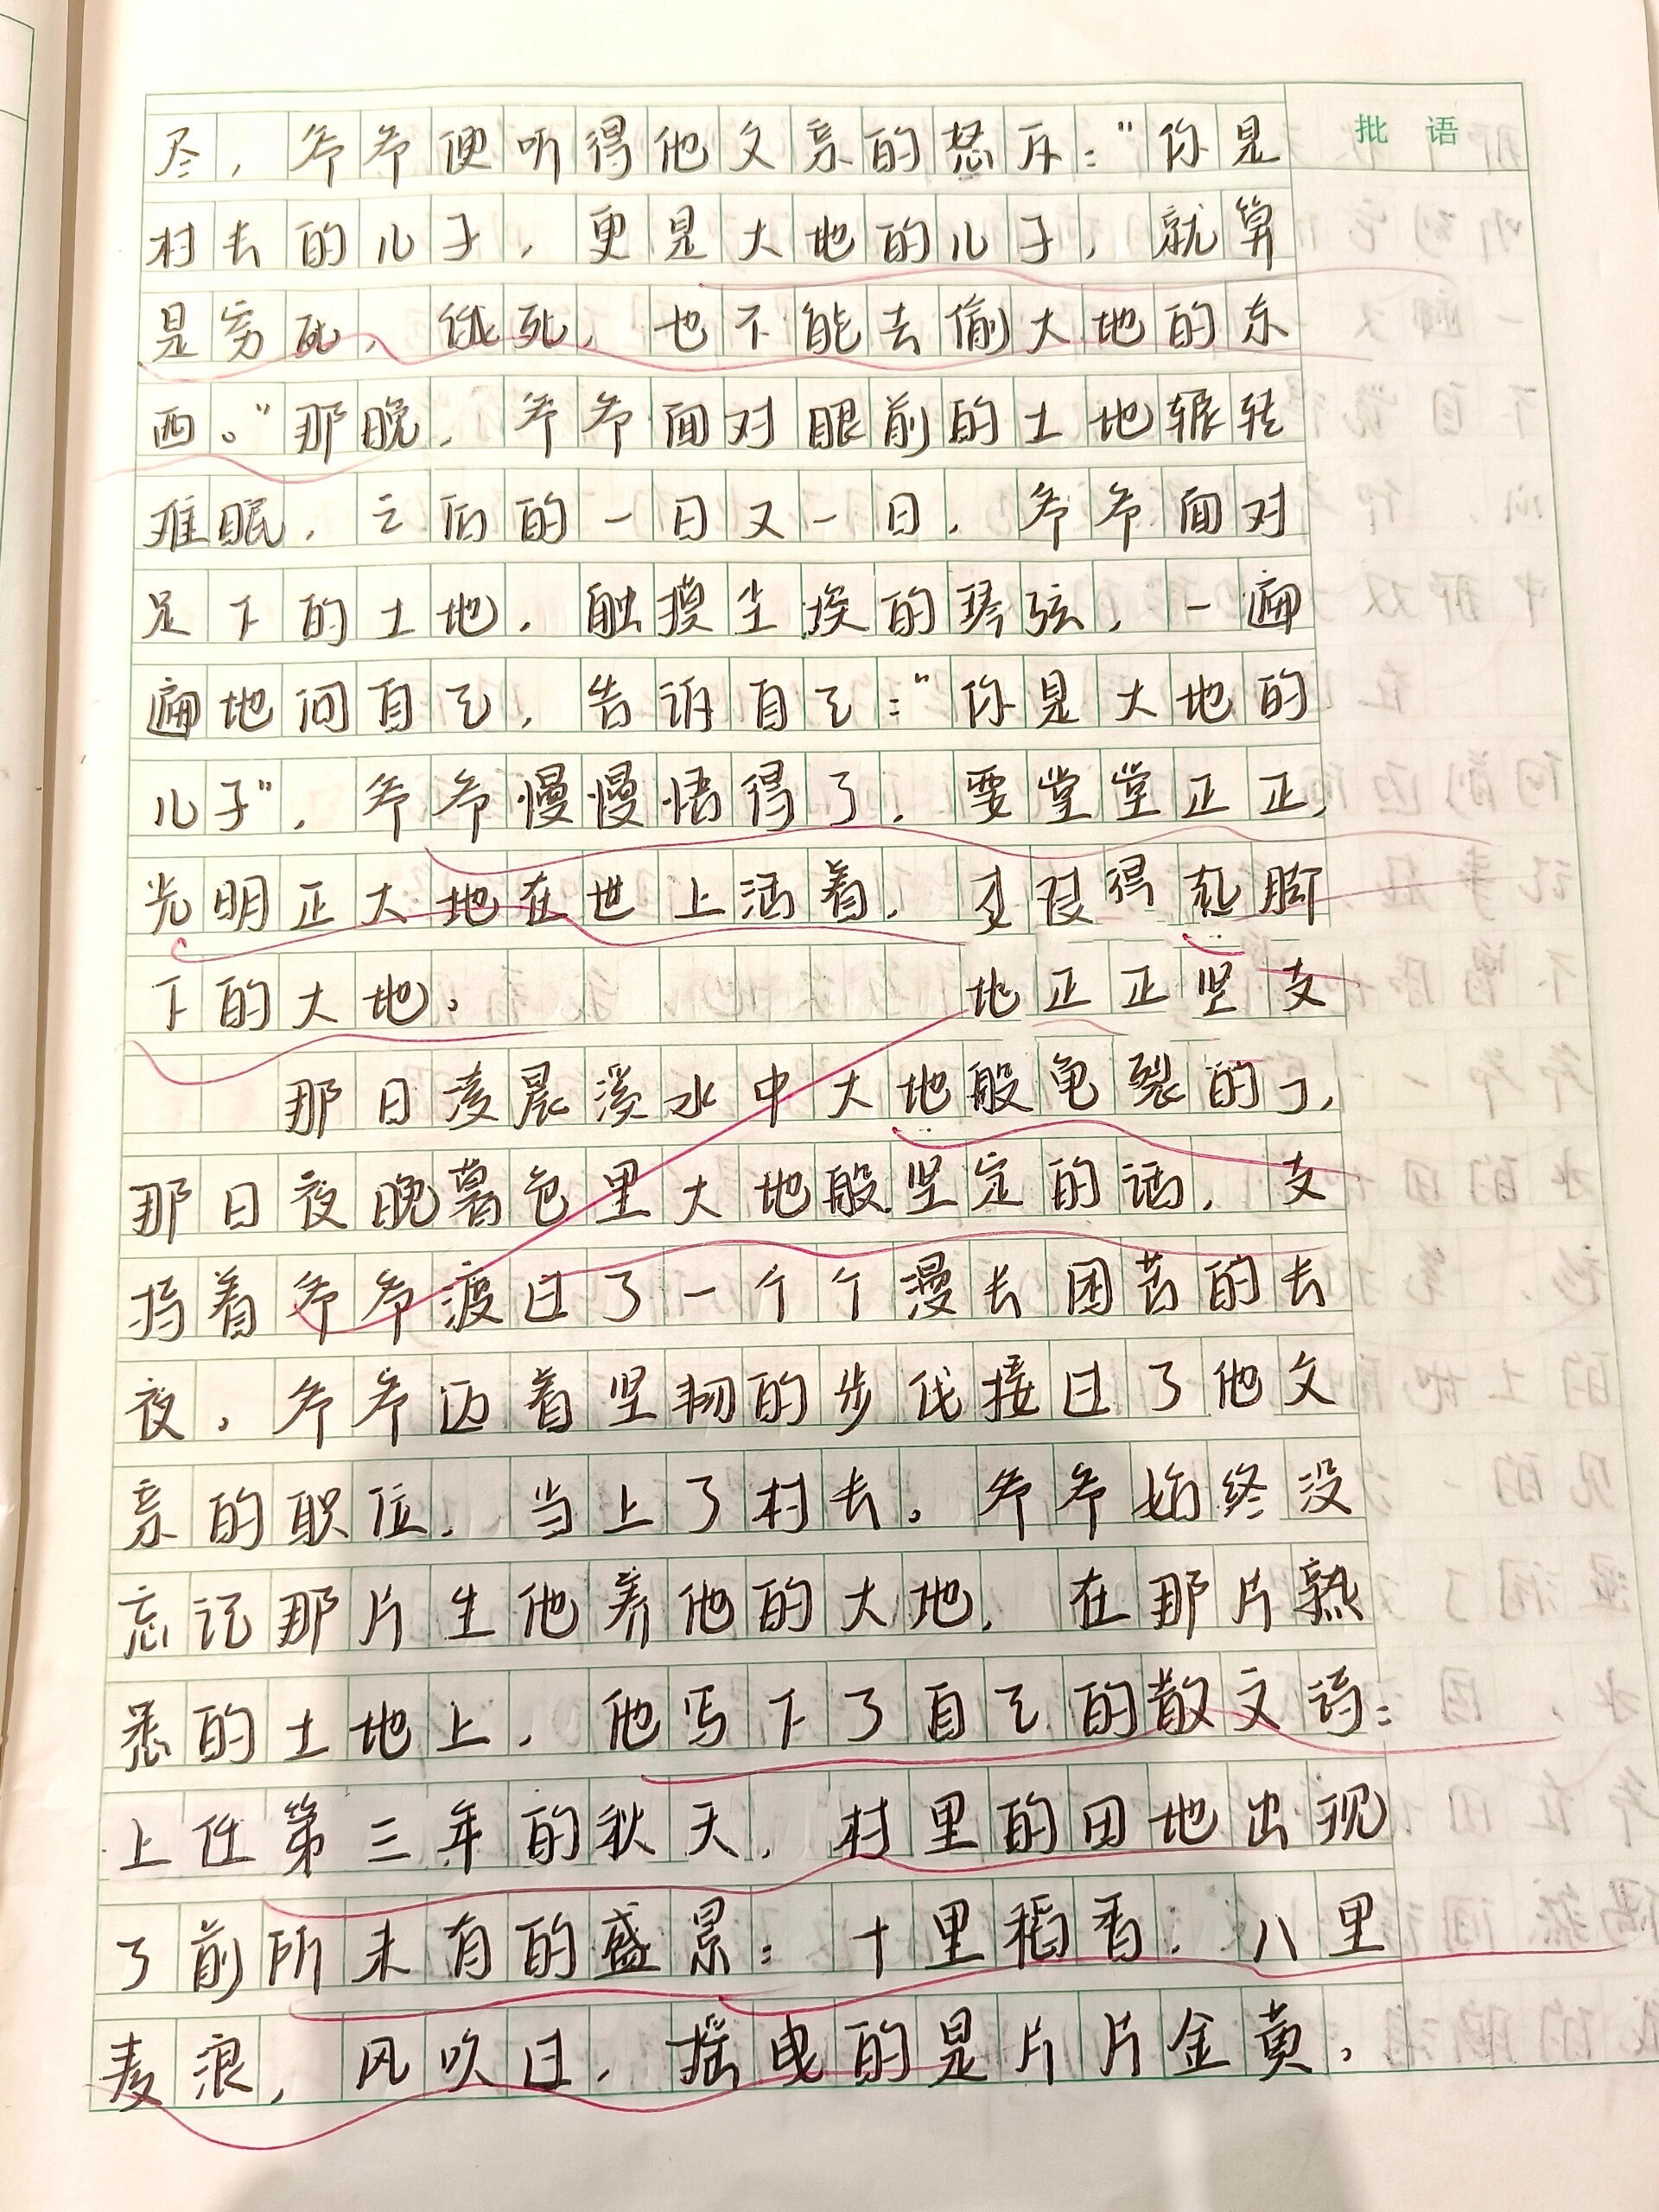 批 语
尽，爷爷便听得他父亲的怒斥：“你是
村长的儿子，更是大地的儿子，就算
是穷死，饿死，也不能去偷大地的东
西。”那晚，爷爷面对眼前的土地辗转
难眠，之后的一日又一日，爷爷面对
足下的土地，触摸尘埃的琴弦，一遍
遍地问自己，告诉自己：“你是大地的
儿子”，爷爷慢慢悟得了，要堂堂正正，
光明正大地在世上活着，才对得起脚
下的大地。
地正正坚支
那日凌晨溪水中大地般龟裂的了，
那日夜晚暮色里大地般坚定的话，支
持着爷爷渡过了一个个漫长困苦的长
夜，爷爷迈着坚韧的步伐接过了他父
亲的职位，当上了村长。爷爷始终没
忘记那片生他养他的大地，在那片熟
悉的土地上，他写下了自己的散文诗：
上任第三年的秋天，村里的田地出现
了前所未有的盛景：十里稻香，八里
麦浪，风吹过，摇曳的是片片金黄，